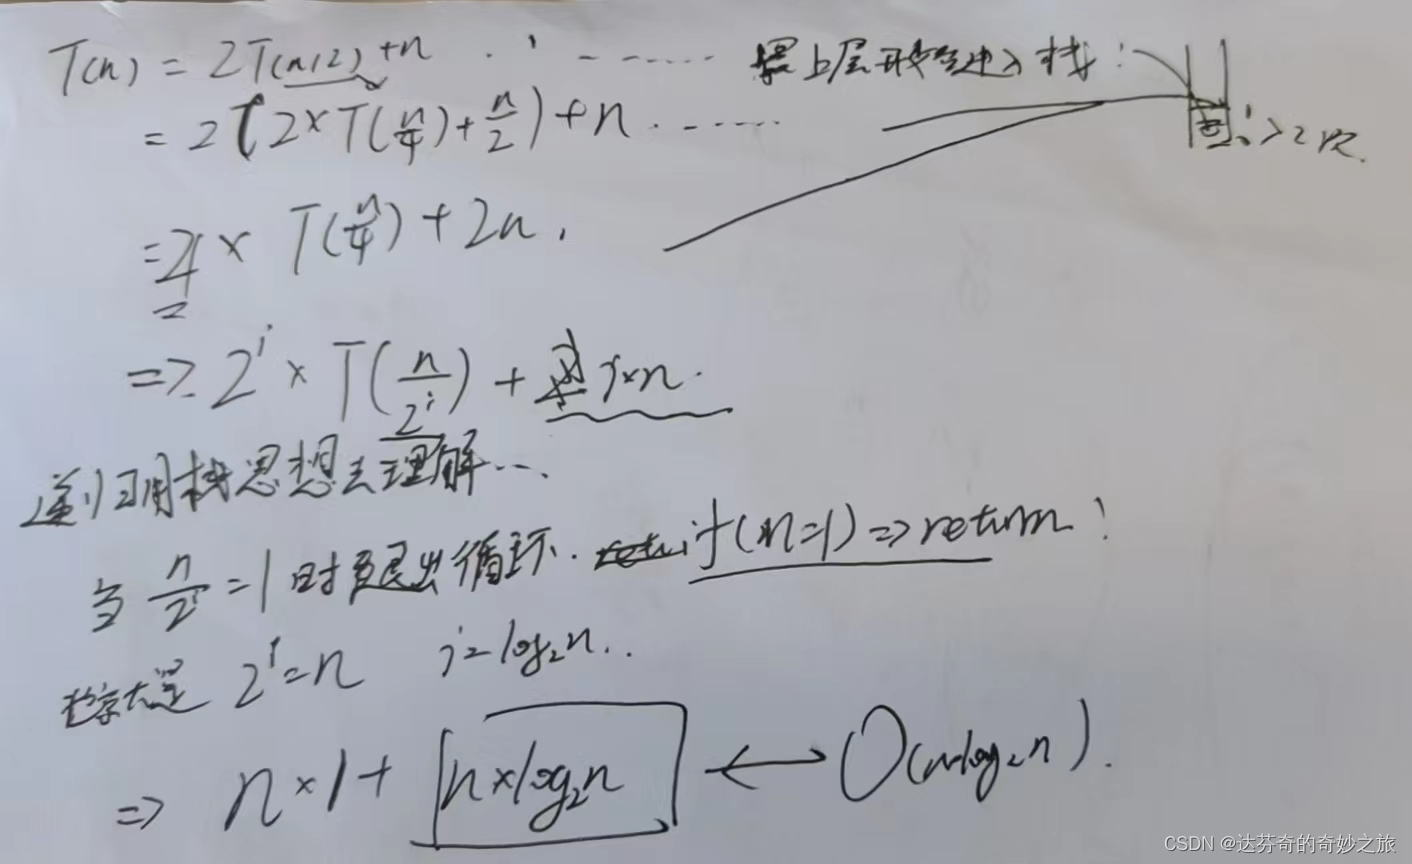 T(n) = 2T(n/2) + n . ' ------ 最上层形式进入栈:
= 2(2×T(n/4)+n/2)+n . ------
=4 × T(n/4) + 2n .
=> 2^i × T(n/2^i) + i×n .
递归用栈思想去理解...
当 n/2^i = 1 时 退出循环 . if(n=1) => return !
2^i = n i = log₂n ..
=> n×1 + n×log₂n ↔ O(nlog₂n) .
CSDN @达芬奇的奇妙之旅